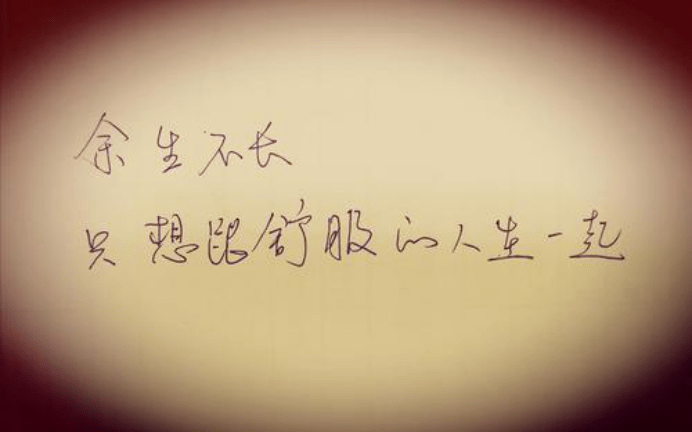 余生不长
只想跟舒服的人在一起